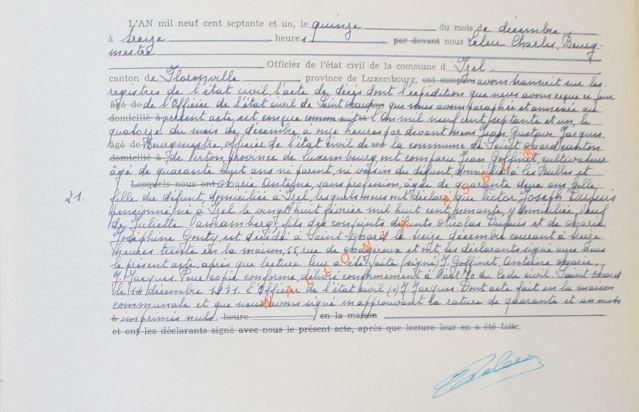 L'AN mil neuf cent septante et un, le quinze du mois de décembre
à treize heures par devant nous Charles, Bourg-
mestre
Officier de l'état civil de la commune d Izel
canton de Florenville, province de Luxembourg, ont comparu avons transcrit sur les
registres de l'état civil, l'acte de décès dont l'expédition que nous avons reçue ce jour
âgé de de l'Officier de l'état civil de Saint que nous avons paraphée et annexée au
domicilié à présent acte, est conçue comme suit: L'an mil neuf cent septante et un, le
quatorze du mois de décembre, à onze heures par devant nous Jean Gustave Jacques,
âgé de Bourgmestre, officier de l'état civil de la commune de Saint canton
domicilié à de Virton, province de Luxembourg, ont comparu Jean Goffinet, cultivateur
âgé de quarante huit ans ni parent, ni voisin du défunt, domicilié à les Bulles et
Lesquels nous ont Marie Antoine, sans profession, âgée de quarante deux ans, fille,
21. fille du défunt, domiciliée à Izel, lesquels nous ont déclaré que Victor Joseph Dupuis
pensionné, né à Izel le vingt huit février mil huit cent nonante, y domicilié, veuf
de Juliette fils des conjoints défunts Nicolas Dupuis et de Marie
Joséphine est décédé à Saint le treize décembre courant à seize
heures trente en sa maison, 55, rue de et ont les déclarants signé avec nous
le présent acte, après que lecture leur en a été faite (signé) J. Goffinet, Antoine Marie,
J. Jacques. Pour copie conforme, délivré conformément à l'art 70 du Code civil. Saint
le 14 décembre 1971. L'Officier de l'état civil (s) J. Jacques. Dont acte fait en la maison
communale et que nous avons signé en approuvant la rature de quarante et un mots
à imprimés nuls. heure en la maison
et ont les déclarants signé avec nous le présent acte, après que lecture leur en a été faite.
WALLONIA ASBL